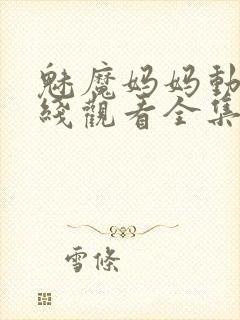 魅魔妈妈動
綫觀看全集
雪條